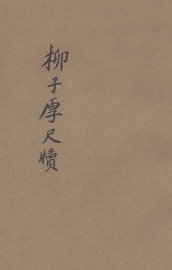 柳子厚尺牘